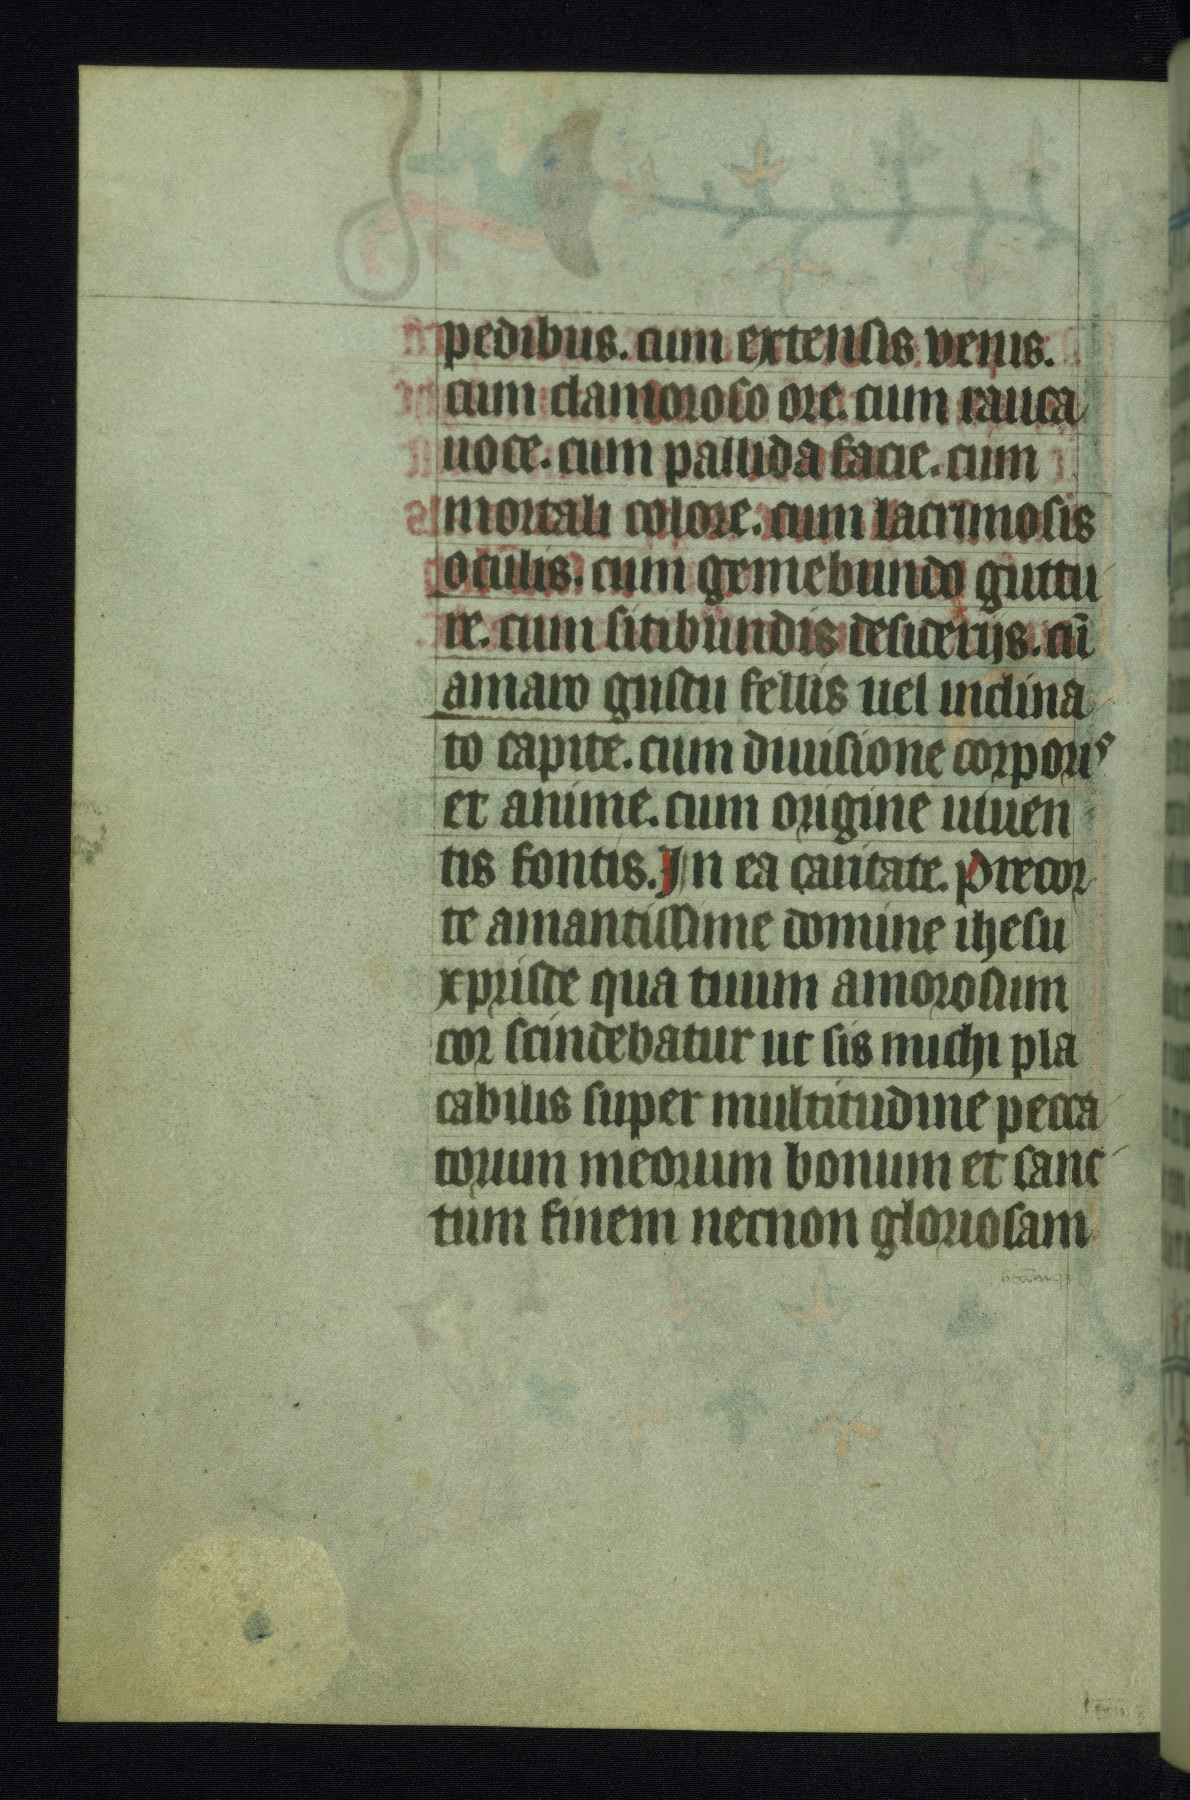 pedibus. cum extensis venis.
cum clamoroso ore. cum rauca
uoce. cum pallida facie. cum
mortali colore. cum lacrimosis
oculis. cum gemebundo guttu
re. cum sitibundis desiderijs. cū
amaro gustu fellis uel inclina
to capite. cum diuisione corporis
et anime. cum origine uiuen
tis fontis. In ea caritate. Precor
te amantissime domine ihesu
xpriste qua tuum amorosum
cor scindebatur ut sis michi pla
cabilis super multitudine pecca
torum meorum bonum et sanc
tum finem necnon gloriosam